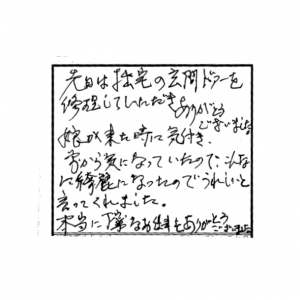 先日は拙宅の玄関ドアーを
修理していただきありがとう
ございました
娘が来た時に気付き、
常から気になっていたので、こんな
に綺麗になったのでうれしいと
言ってくれました。
本当に丁寧なお仕事もありがとう
ございました